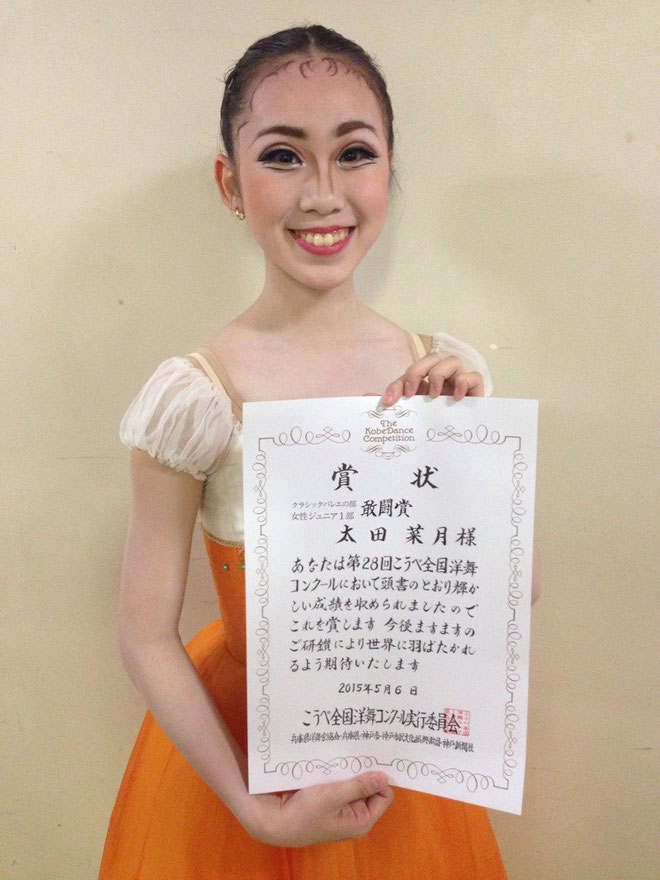 The
KobeDance
Competition
賞状
クラシックバレエの部
女性ジュニア1部 敢闘賞
太田菜月様
あなたは第28回こうべ全国洋舞
コンクールにおいて頭書のとおり輝か
しい成績を収められましたので
これを賞します 今後ますますの
ご研鑽により世界に羽ばたかれ
るよう期待いたします
2015年5月6日
こうべ全国洋舞コンクール実行委員会
兵庫県洋舞家協会・兵庫県・神戸市・神戸市民文化振興財団・神戸新聞社